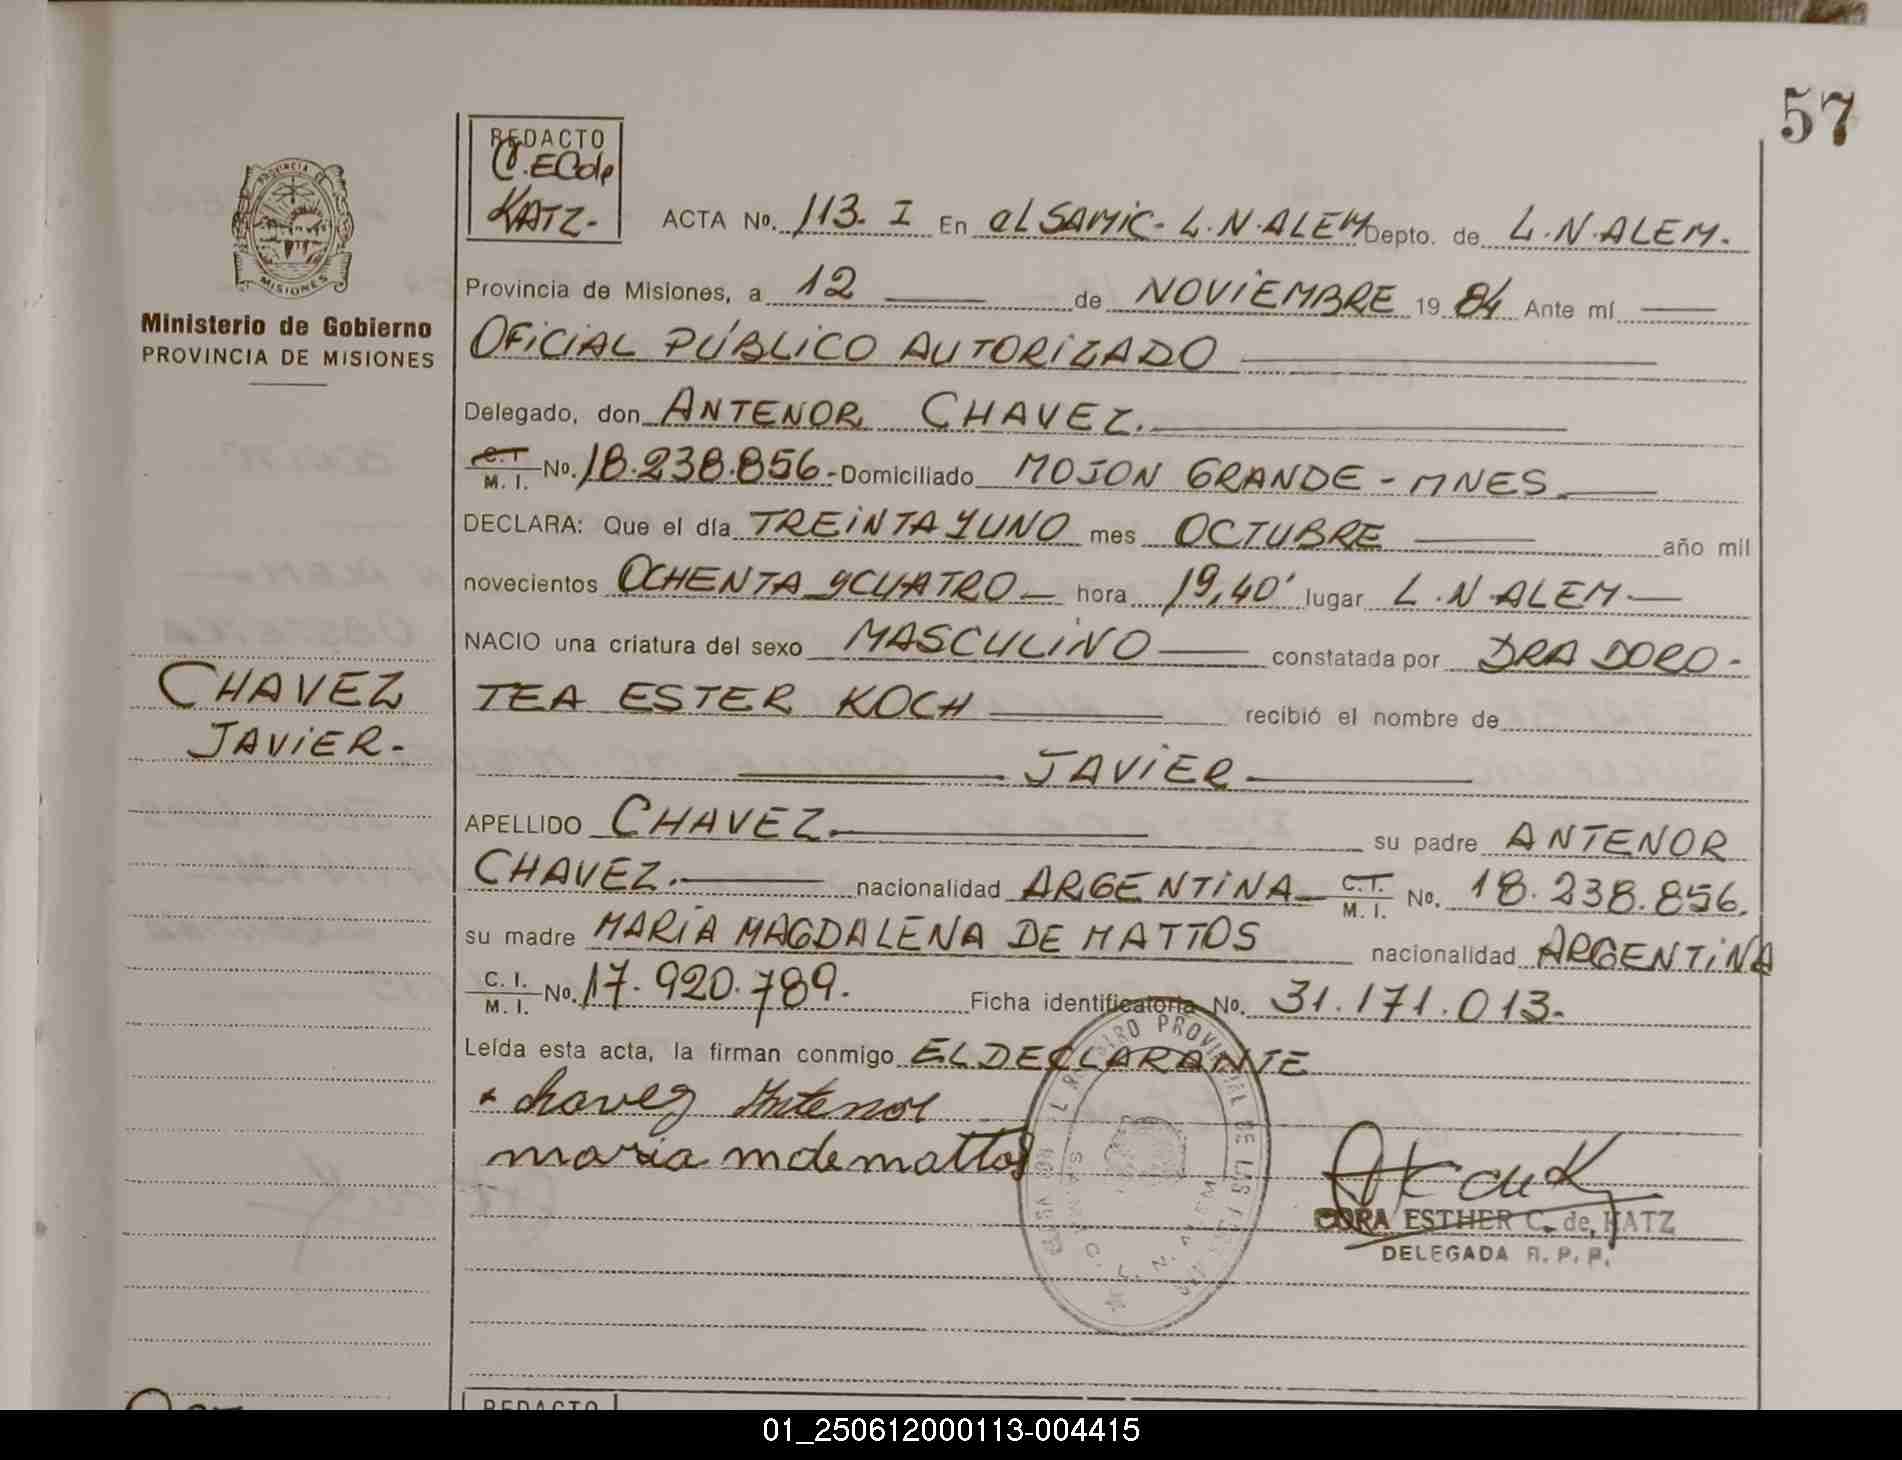 57
REDACTO
C.EC de
KATZ-
PROVINCIA DE
MISIONES
Ministerio de Gobierno
PROVINCIA DE MISIONES
ACTA No. 113. I En el SAMIC - L.N.ALEM Depto. de L.N.ALEM.
Provincia de Misiones, a 12 de NOVIEMBRE 19 84 Ante mí
OFICIAL PÚBLICO AUTORIZADO
Delegado, don ANTENOR CHAVEZ.
C.I M. I. No. 18.238.856 - Domiciliado MOJON GRANDE - MNES
DECLARA: Que el día TREINTA Y UNO mes OCTUBRE año mil
novecientos OCHENTA Y CUATRO hora 19,40' lugar L.N.ALEM
NACIO una criatura del sexo MASCULINO constatada por DRA DORO-
TEA ESTER KOCH recibió el nombre de
CHAVEZ
JAVIER-
JAVIER
APELLIDO CHAVEZ. su padre ANTENOR
CHAVEZ. nacionalidad ARGENTINA C.I. M. I. No. 18.238.856.
su madre MARIA MAGDALENA DE MATTOS nacionalidad ARGENTINA
C. I. M. I. No. 17.920.789. Ficha identificatoria No. 31.171.013.
Leída esta acta, la firman conmigo EL DECLARANTE
chavez Antenor
maria m de mattos
CORA ESTHER C. de KATZ
DELEGADA R. P. P.
REDACTO
01_250612000113-004415